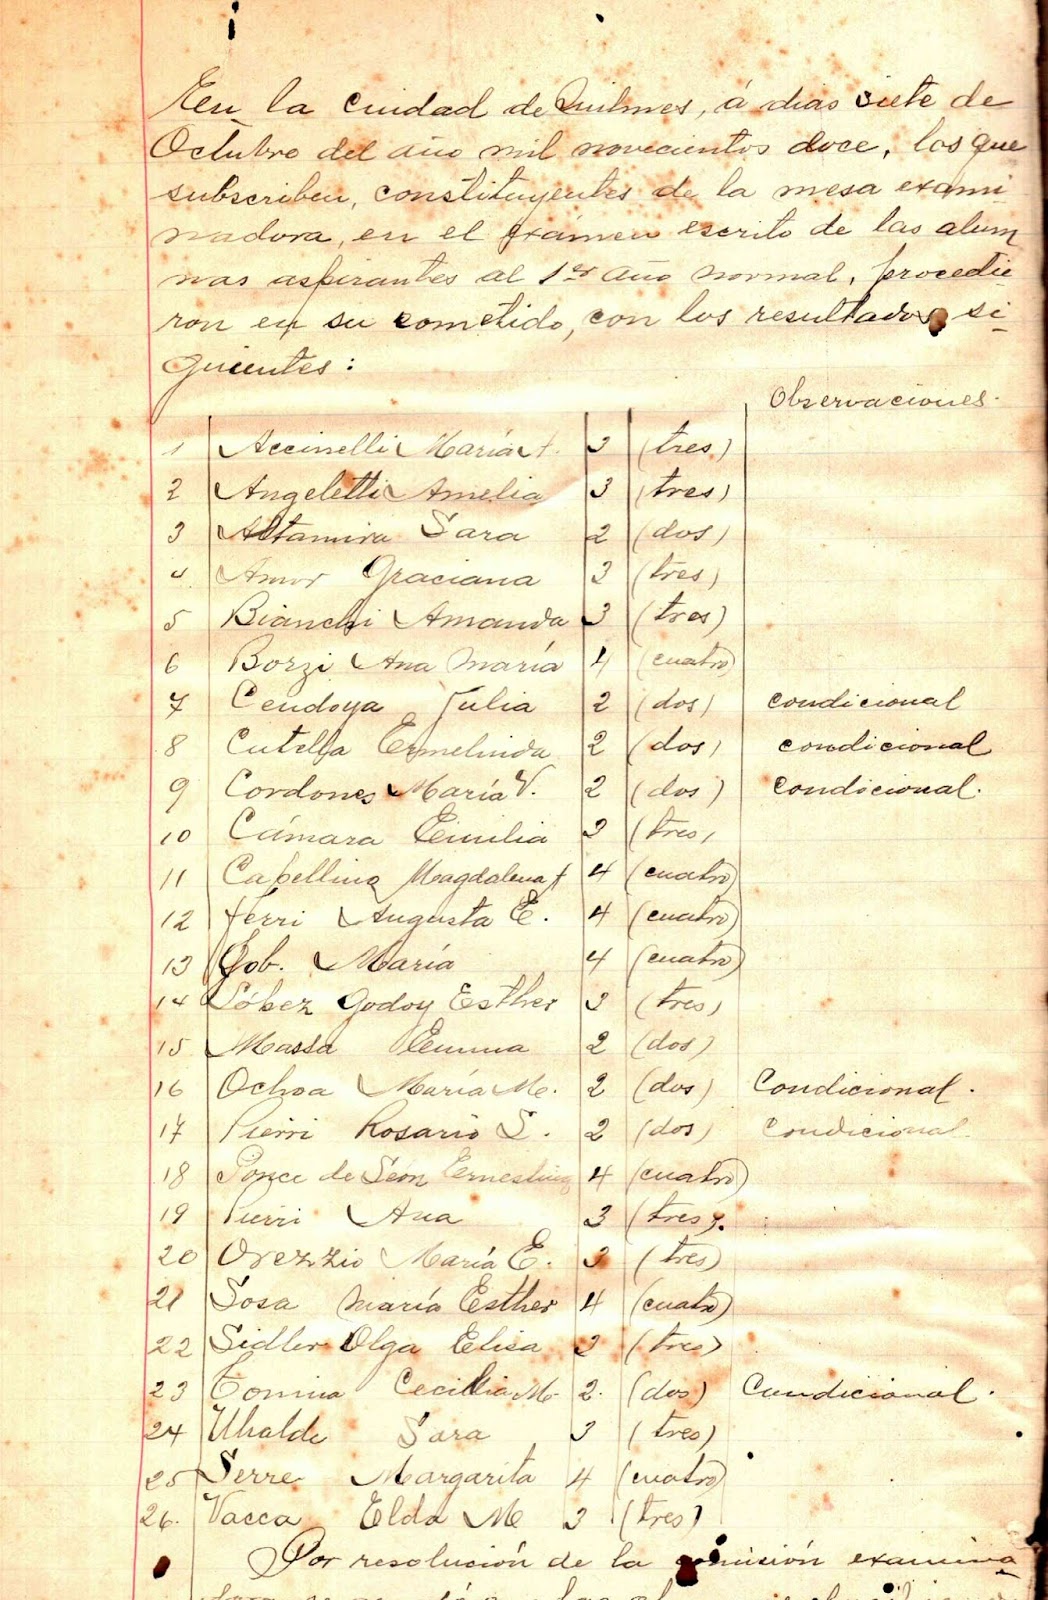 En la ciudad de Quilmes, á dias siete de
Octubre del año mil novecientos doce, los que
subscriben, constituyentes de la mesa exami-
nadora, en el exámen escrito de las alum
nas aspirantes al 1er año normal, procedie
ron en su cometido, con los resultados si-
guientes:
Observaciones.
1 Accinelli María A. 3 (tres)
2 Angeletti Amelia 3 (tres)
3 Altamira Sara 2 (dos)
4 Amor Graciana 3 (tres)
5 Bianchi Amanda 3 (tres)
6 Borzi Ana María 4 (cuatro)
7 Cendoya Julia 2 (dos) condicional
8 Cutella Ermelinda 2 (dos) condicional
9 Cordones María V. 2 (dos) condicional.
10 Cámara Emilia 3 (tres)
11 Capellino Magdalena 4 (cuatro)
12 Ferri Augusta E. 4 (cuatro)
13 Gob. María 4 (cuatro)
14 López Godoy Esther 3 (tres)
15 Massa Emma 2 (dos)
16 Ochoa María M. 2 (dos) Condicional.
17 Pierri Rosario S. 2 (dos) Condicional
18 Ponce de León Ernestina 4 (cuatro)
19 Pierri Ana 3 (tres).
20 Orezzio María E. 3 (tres)
21 Sosa María Esther 4 (cuatro)
22 Sidler Olga Elisa 3 (tres)
23 Tomina Cecilia M. 2. (dos) Condicional.
24 Uhalde Sara 3 (tres)
25 Serre Margarita 4 (cuatro)
26. Vacca Elda M 3 (tres)
Por resolución de la comisión examina-